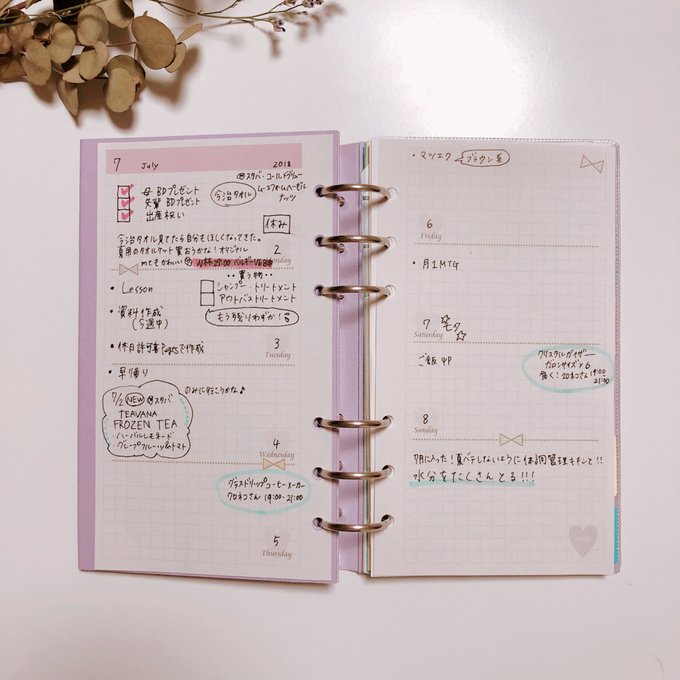 7 July 2018
@スタバ・コールドブリュー
ムースフォームヘーゼル
ナッツ
今治タオル
母 BDプレゼント
先輩 BDプレゼント
出産祝い
休み
今治タオル見てたら自分もほしくなってきた。
夏用のタオルケット買おうかな！オリジナル
mtもかわいい
2
・・買う物・・
・Lesson
シャンプー・トリートメント
アウトバストリートメント
・資料作成
(今週中)
もう残りわずか！
3
Tuesday
・休日許可書Pagesで作成
・早り帰り
のみに行こうかな♪
7/2 NEW @スタバ
TEAVANA
FROZEN TEA
ハーバルレモネード
グレープフルーツ&トマト
4
Wednesday
グラスドリップコーヒーメーカー
クロネコさん 19:00-21:00
5
Thursday
・マツエク ブラウン系
6
Friday
・月1MTG
7
Saturday
七夕
ご飯 4P
クリスタルガイザー
ガロンサイズ×6
届く！クロネコさん 19:00
21:00
8
Sunday
7月に入った！夏バテしないように体調管理キチンと!!
水分をたくさんとる!!!